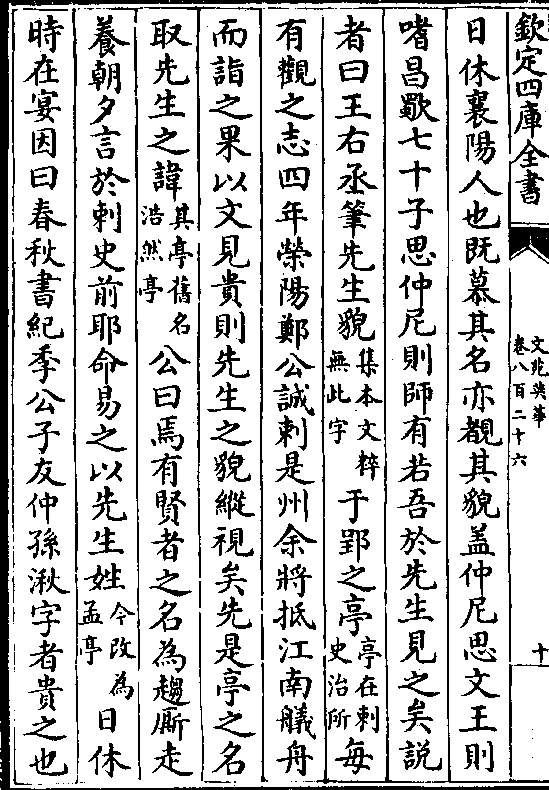 欽定四庫全書
文苑英華
卷八百二十六
十
日休襄陽人也既慕其名亦覩其貌盖仲尼思文王則
嗜昌歜七十子思仲尼則師有若吾於先生見之矣説
者曰王右丞筆先生貌集本文粹無此字于郢之亭亭在刺史治所每
有觀之志四年滎陽鄭公諴刺是州余將抵江南艤舟
而詣之果以文見貴則先生之貌縱視矣先是亭之名
取先生之諱其亭舊名浩然亭公曰焉有賢者之名為趨厮走
養朝夕言於刺史前耶命易之以先生姓今改為孟亭日休
時在宴因曰春秋書紀季公子友仲孫湫字者貴之也